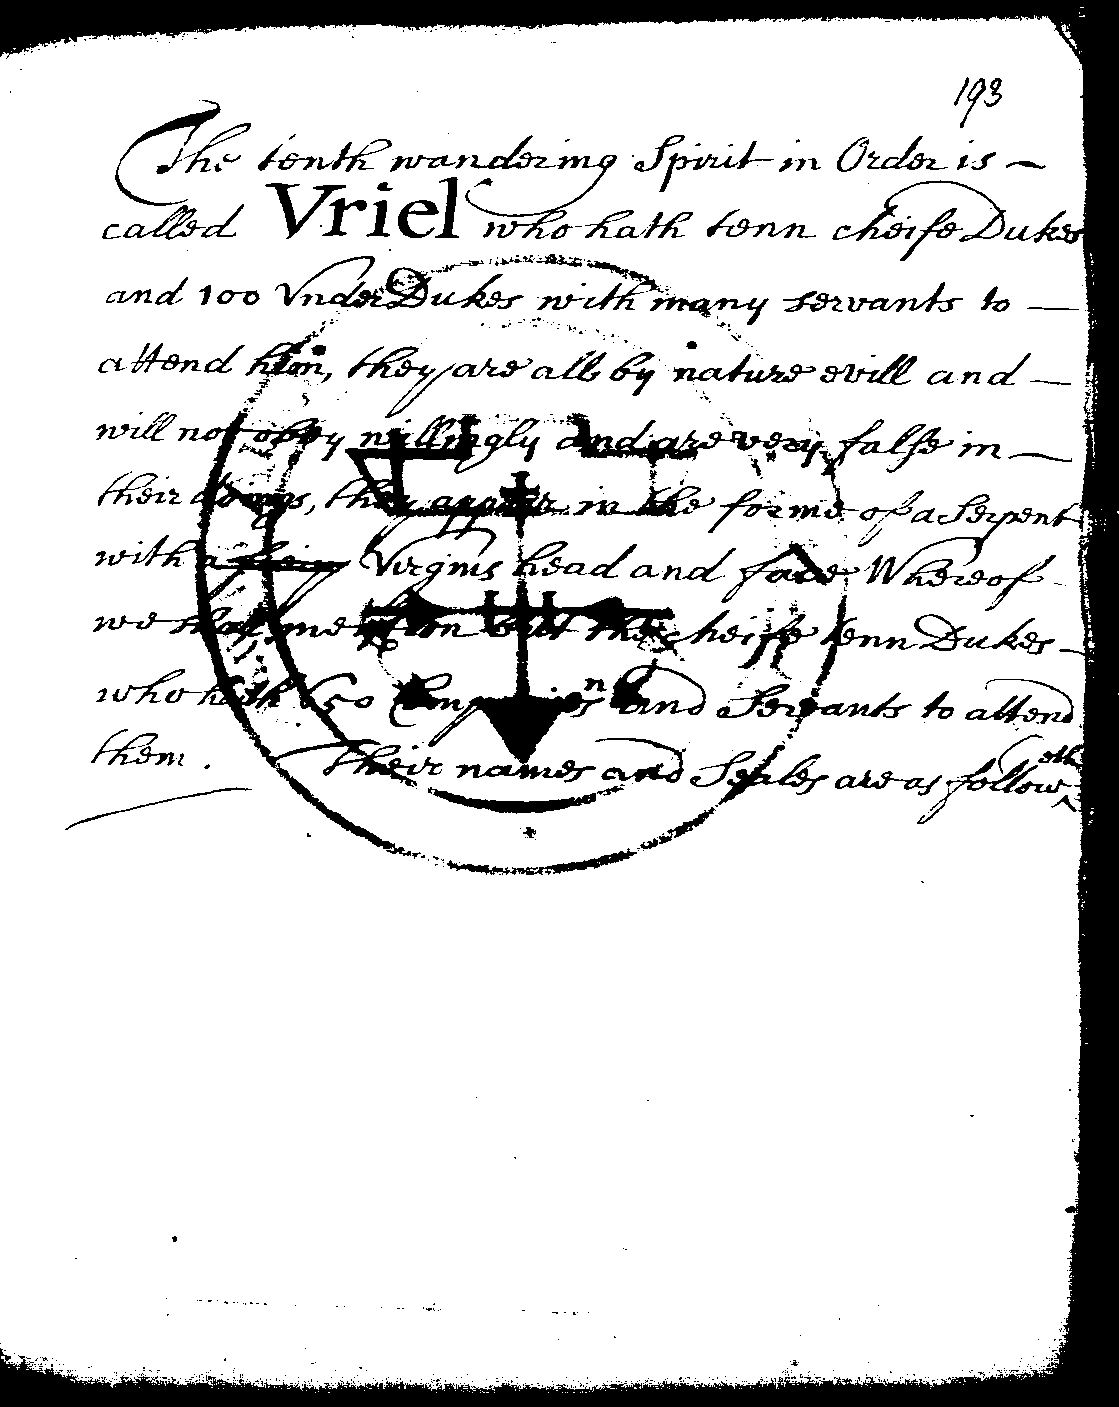 193
The tenth wandering Spirit in Order is —
called Vriel who hath tenn cheife Dukes
and 100 VnderDukes with many servants to —
attend him, they are all by nature evill and —
will not obey willingly and are very false in —
their doings, they appear in the forme of a Serpent
with a Virgins head and face Whereof
we shall mention but the cheife tenn Dukes —
who hath 650 Companions and Servants to attend
them. Their names and Seales are as followeth